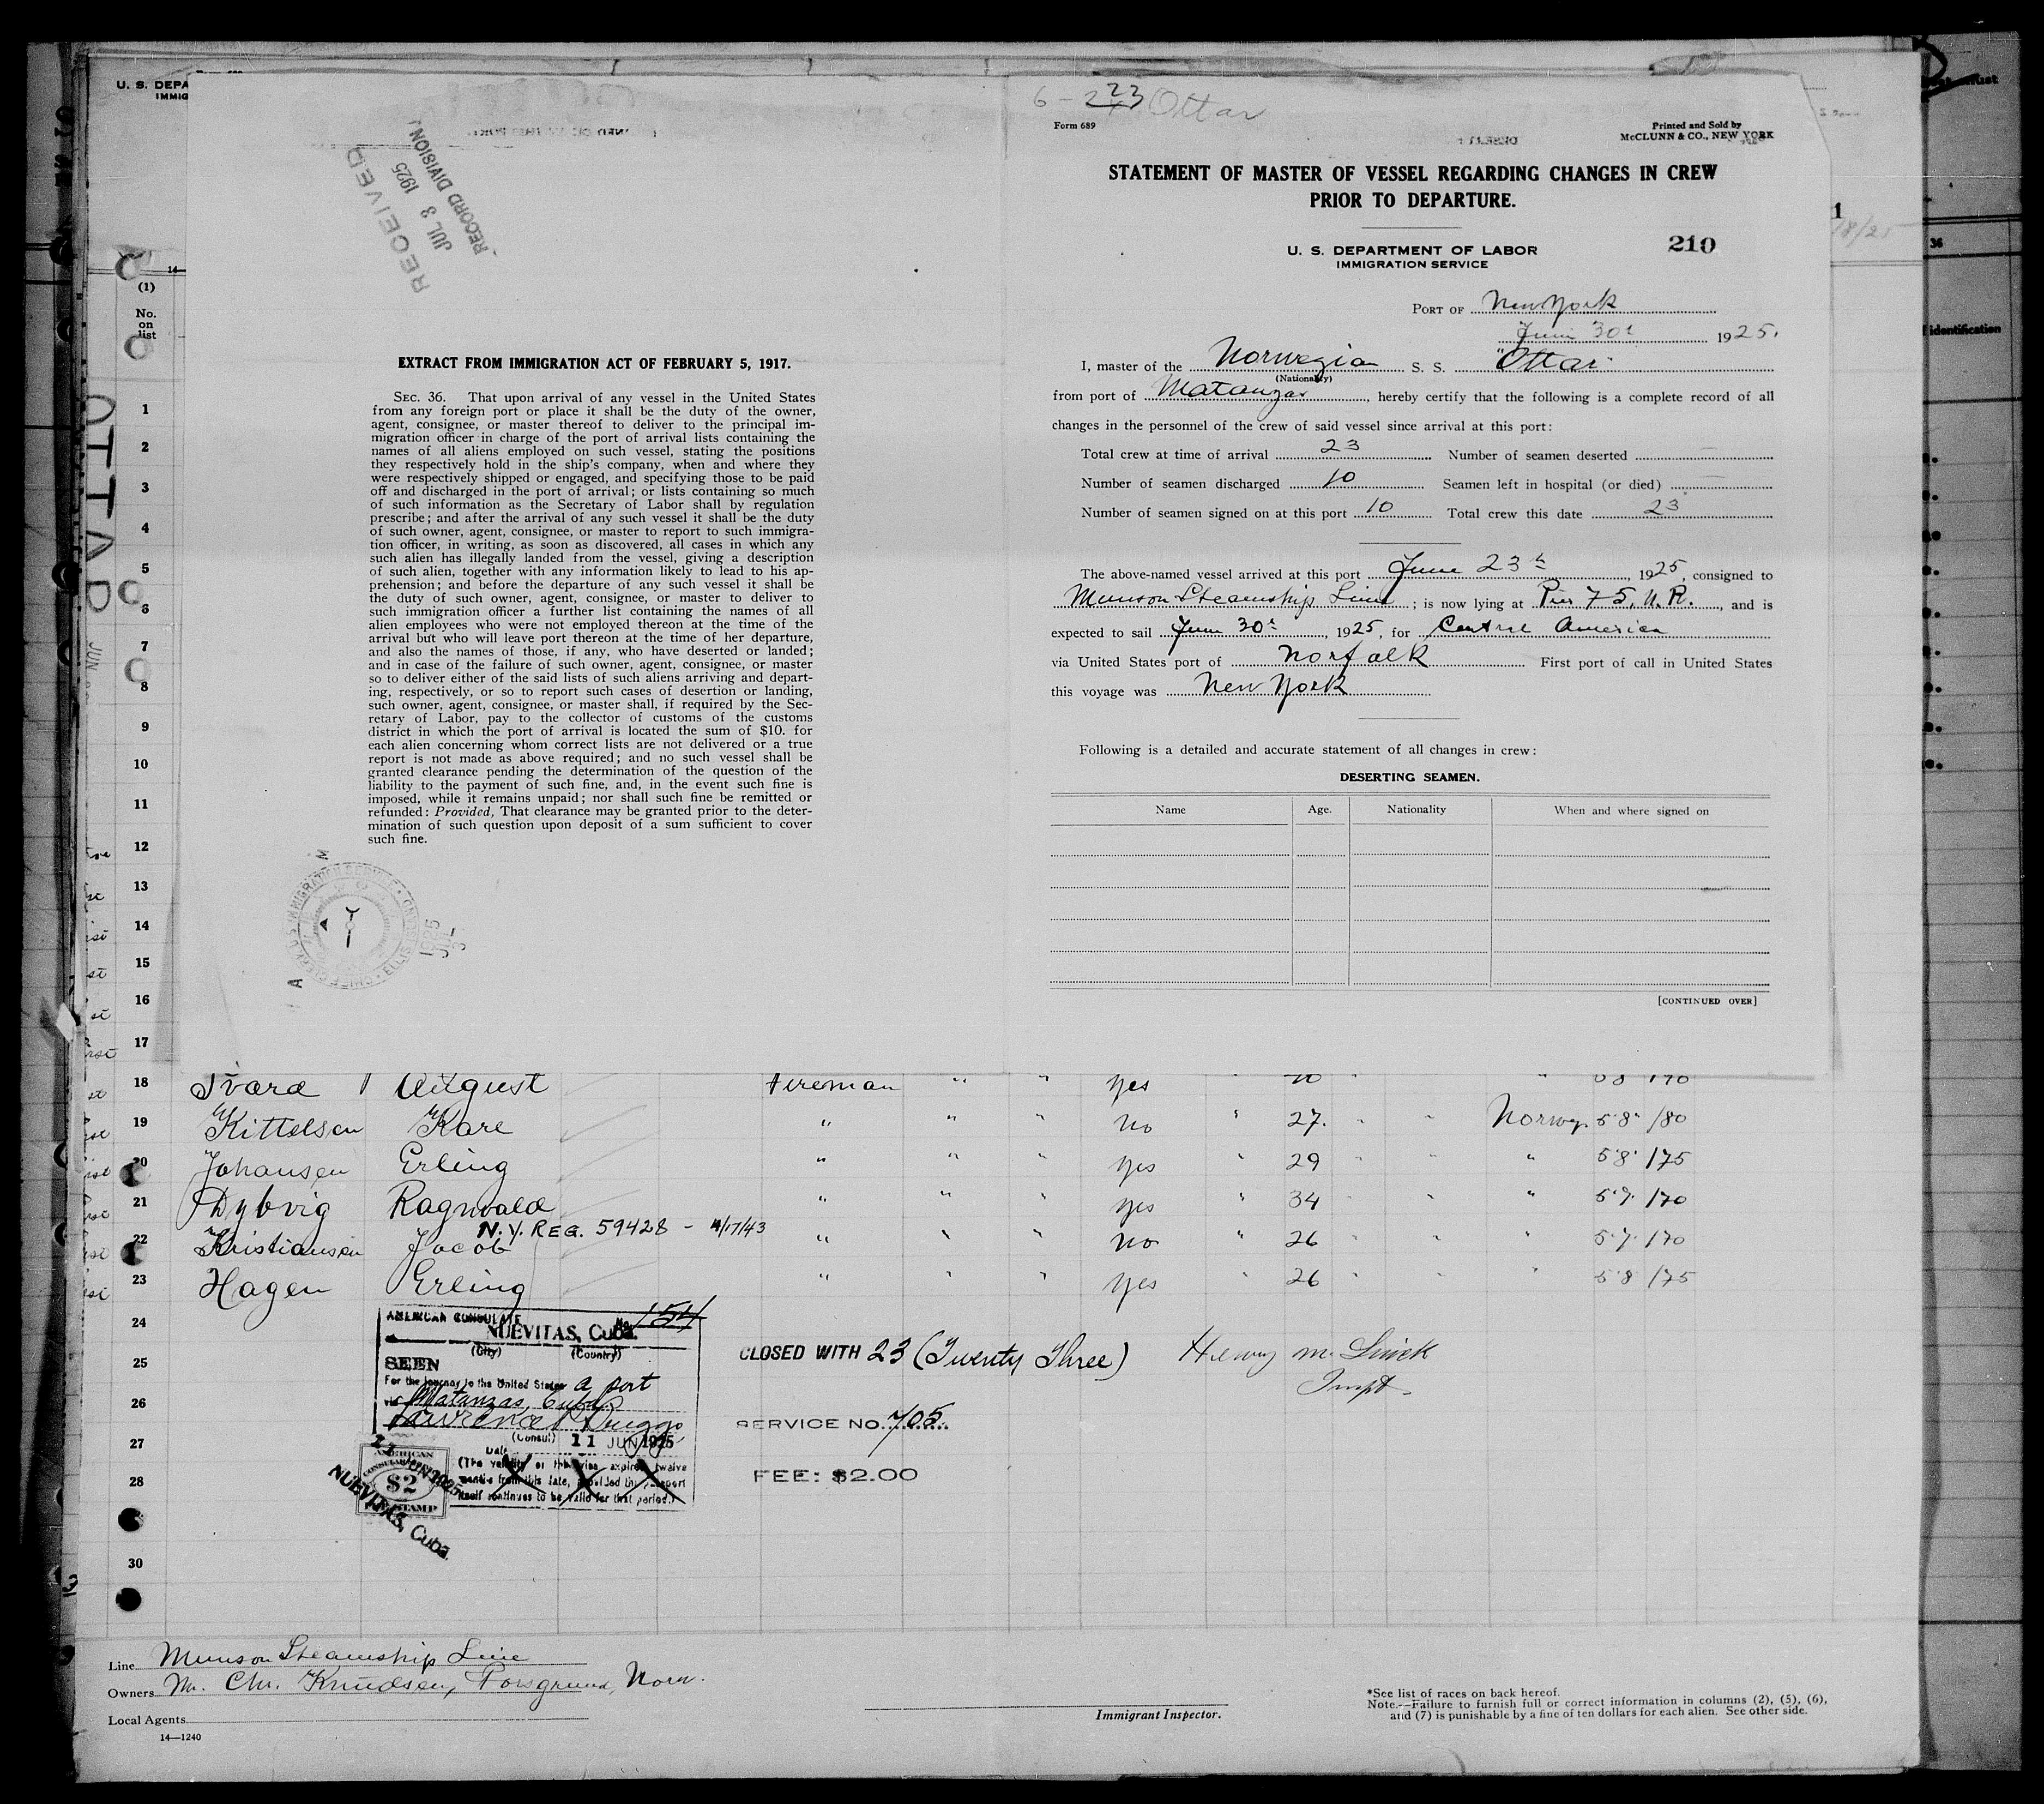 U. S. DEPA
IMMIG
14—
(1)
No.
on
list
OTTAR
JUN
RECEIVED
JUL 3 1925
RECORD DIVISION
EXTRACT FROM IMMIGRATION ACT OF FEBRUARY 5, 1917.
SEC. 36. That upon arrival of any vessel in the United States
from any foreign port or place it shall be the duty of the owner,
agent, consignee, or master thereof to deliver to the principal im-
migration officer in charge of the port of arrival lists containing the
names of all aliens employed on such vessel, stating the positions
they respectively hold in the ship's company, when and where they
were respectively shipped or engaged, and specifying those to be paid
off and discharged in the port of arrival; or lists containing so much
of such information as the Secretary of Labor shall by regulation
prescribe; and after the arrival of any such vessel it shall be the duty
of such owner, agent, consignee, or master to report to such immigra-
tion officer, in writing, as soon as discovered, all cases in which any
such alien has illegally landed from the vessel, giving a description
of such alien, together with any information likely to lead to his ap-
prehension; and before the departure of any such vessel it shall be
the duty of such owner, agent, consignee, or master to deliver to
such immigration officer a further list containing the names of all
alien employees who were not employed thereon at the time of the
arrival but who will leave port thereon at the time of her departure,
and also the names of those, if any, who have deserted or landed;
and in case of the failure of such owner, agent, consignee, or master
so to deliver either of the said lists of such aliens arriving and depart-
ing, respectively, or so to report such cases of desertion or landing,
such owner, agent, consignee, or master shall, if required by the Sec-
retary of Labor, pay to the collector of customs of the customs
district in which the port of arrival is located the sum of $10. for
each alien concerning whom correct lists are not delivered or a true
report is not made as above required; and no such vessel shall be
granted clearance pending the determination of the question of the
liability to the payment of such fine, and, in the event such fine is
imposed, while it remains unpaid; nor shall such fine be remitted or
refunded: Provided, That clearance may be granted prior to the deter-
mination of such question upon deposit of a sum sufficient to cover
such fine.
6 - 23 Ottar
Form 689
Printed and Sold by
McCLUNN & CO., NEW YORK
STATEMENT OF MASTER OF VESSEL REGARDING CHANGES IN CREW
PRIOR TO DEPARTURE.
U. S. DEPARTMENT OF LABOR
IMMIGRATION SERVICE
210
PORT OF New York
June 30th 1925.
I, master of the Norwegian S. S. "Ottar"
(Nationality)
from port of Matanzas, hereby certify that the following is a complete record of all
changes in the personnel of the crew of said vessel since arrival at this port:
Total crew at time of arrival 23 Number of seamen deserted —
Number of seamen discharged 10 Seamen left in hospital (or died) —
Number of seamen signed on at this port 10 Total crew this date 23
The above-named vessel arrived at this port June 23rd, 1925, consigned to
Munson Steamship Line; is now lying at Pier 75, N.R., and is
expected to sail June 30th, 1925, for Central America
via United States port of Norfolk First port of call in United States
this voyage was New York
Following is a detailed and accurate statement of all changes in crew:
DESERTING SEAMEN.
Name Age. Nationality When and where signed on
[CONTINUED OVER]
36
identification
1
2
3
4
5
6
7
8
9
10
11
12
13
14
15
16
17
18 August Fireman " " yes "
19 Kittelsen Kare " " " no " 27. " " Norway 5'8" 180
20 Johansen Erling " " " yes 29 " " " 5'8" 175
21 Dybvig Ragnvald " " " yes " 34 " " " 5'7" 170
N.Y. REG. 59428 - 4/17/43
22 Kristiansen Jacob " " " no " 26 " " " 5'7" 170
23 Hagen Erling " " " yes " 26 " " " 5'8 175
24
25
26
27
28
30
AMERICAN CONSULATE No. 154
NUEVITAS, Cuba.
(City) (Country)
SEEN
For the journey to the United States a port
via Matanzas, Cuba
(Consul)
Date 11 JUN 1925
(The validity of this visa expires twelve
months from this date, provided the passport
itself continues to be valid for that period.)
AMERICAN
CONSULAR
$2
FEE STAMP
NUEVITAS, Cuba.
CLOSED WITH 23 (Twenty Three)
SERVICE NO. 705
FEE: $2.00
Line Munson Steamship Line
Owners Mr. Chr. Knudsen, Porsgrund, Norw.
Local Agents
14—1240
Immigrant Inspector.
*See list of races on back hereof.
Note.—Failure to furnish full or correct information in columns (2), (5), (6),
and (7) is punishable by a fine of ten dollars for each alien. See other side.